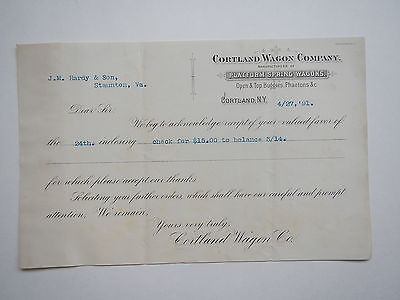 CORTLAND WAGON COMPANY,
MANUFACTURERS OF
PLATFORM SPRING WAGONS,
Open & Top Buggies, Phaetons &c.
J.M. Hardy & Son,
Staunton, Va.
CORTLAND, N.Y. 4/27,'91.
Dear Sir:
We beg to acknowledge receipt of your valued favor of
the 24th. inclosing check for $15.00 to balance 5/14.
for which please accept our thanks.
Soliciting your further orders, which shall have our careful and prompt
attention, We remain,
Yours very truly,
Cortland Wagon Co.